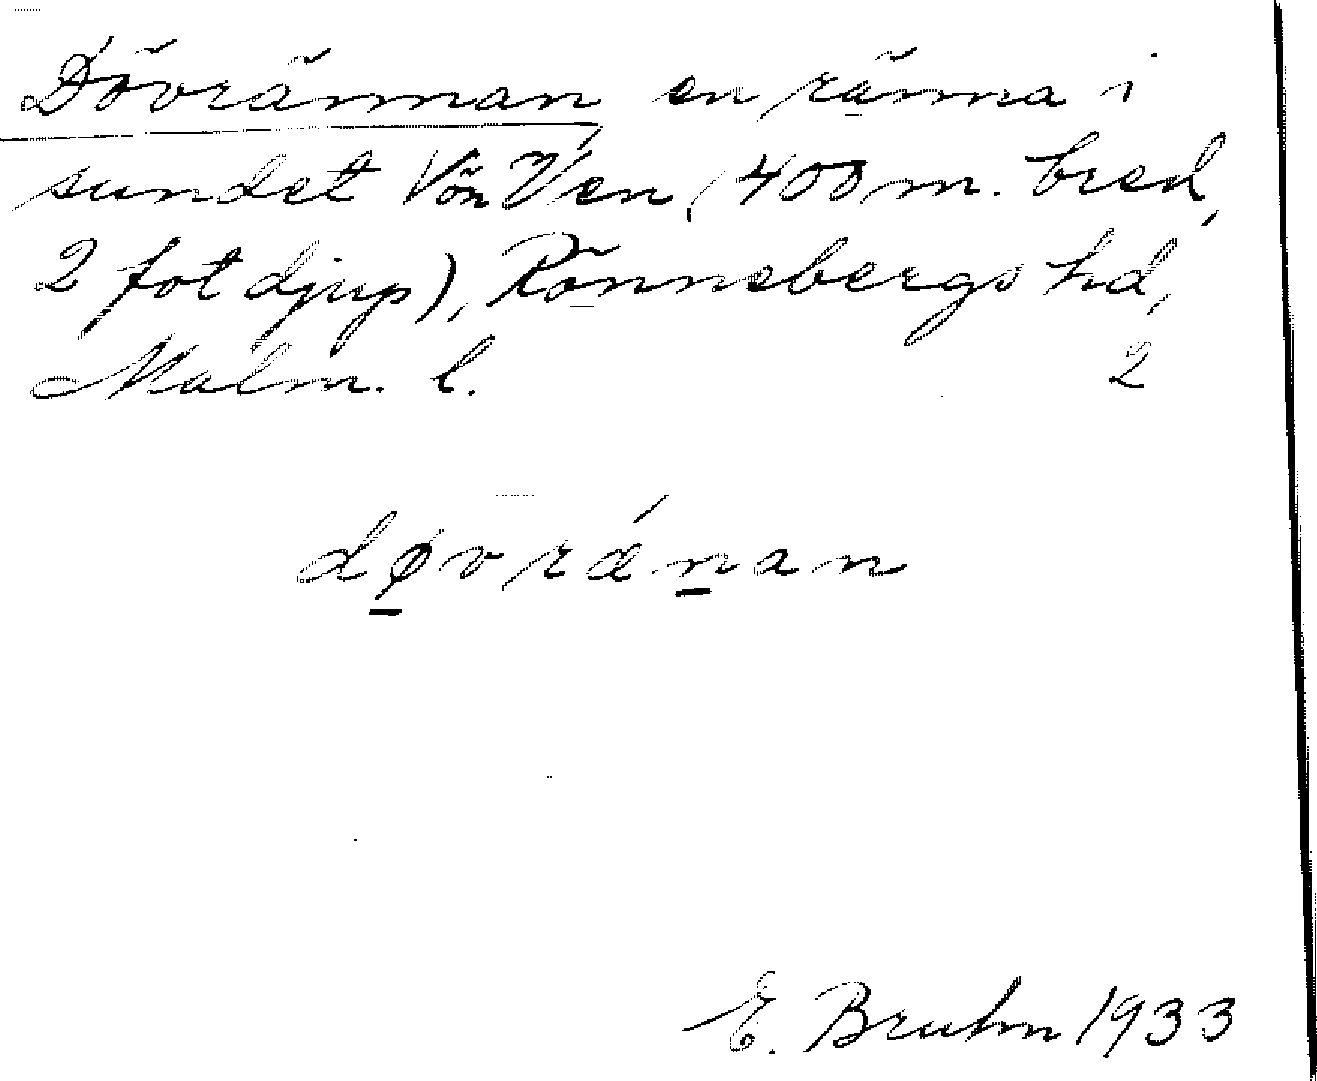 Dövrännan en ränna i
sundet V om Ven, (400 m. bred,
2 fot djup), Rönnebergs hd,
Malm. l. 2
døvrǽnan
E. Bruhn 1933